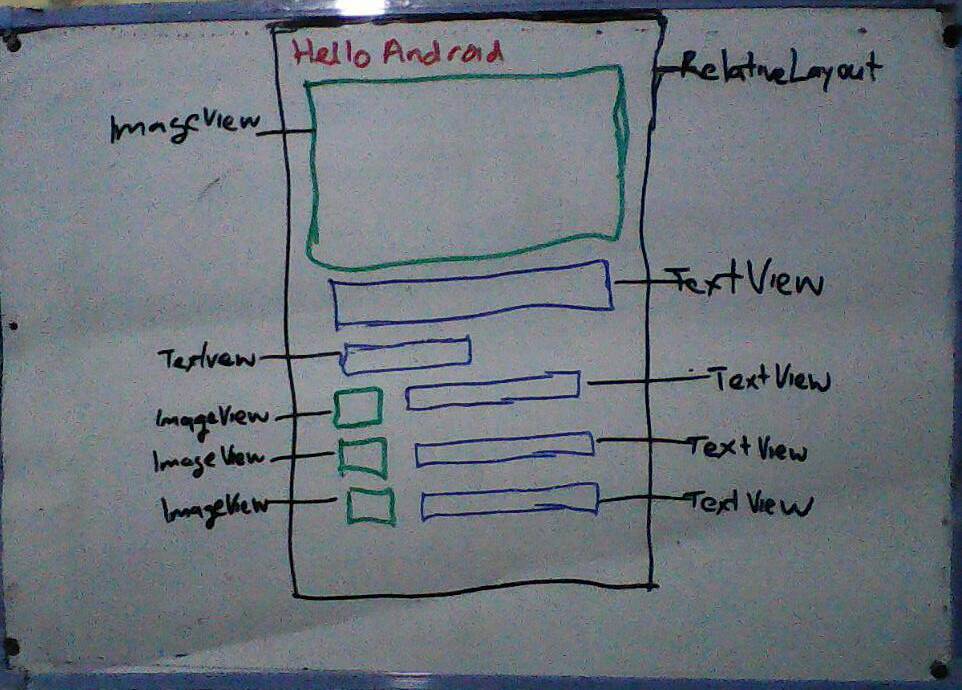 Hello Android
RelativeLayout
ImageView
TextView
Textview
TextView
ImageView
TextView
ImageView
TextView
ImageView